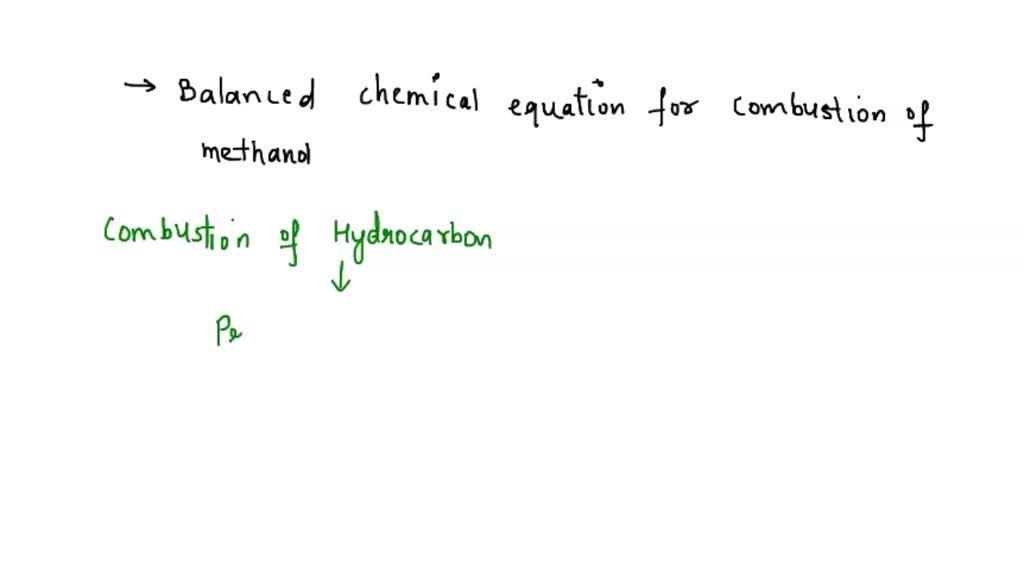 → Balanced chemical equation for combustion of
methanol
Combustion of Hydrocarbon
↓
Pe